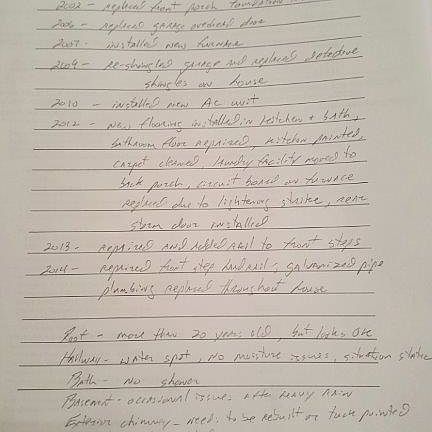 2002 - replaced front porch foundation
2006 - replaced garage overhead door
2007 - installed new furnace
2009 - re-shingled garage and replaced defective
shingles on house
2010 - installed new AC unit
2012 - new flooring installed in kitchen & bath,
bathroom floor repaired, kitchen painted,
carpet cleaned, laundry facility moved to
back porch, circuit board on furnace
replaced due to lightening strike, rear
storm door installed
2013 - repaired and added rail to front steps
2014 - repaired front step handrail, galvanized pipe
plumbing replaced throughout house
Roof - more than 20 years old, but looks OK
Hallway - water spot, no moisture issues, situation static
Bath - no shower
Basement - occasional issues after heavy rain
Exterior chimney - needs to be rebuilt or tuck pointed